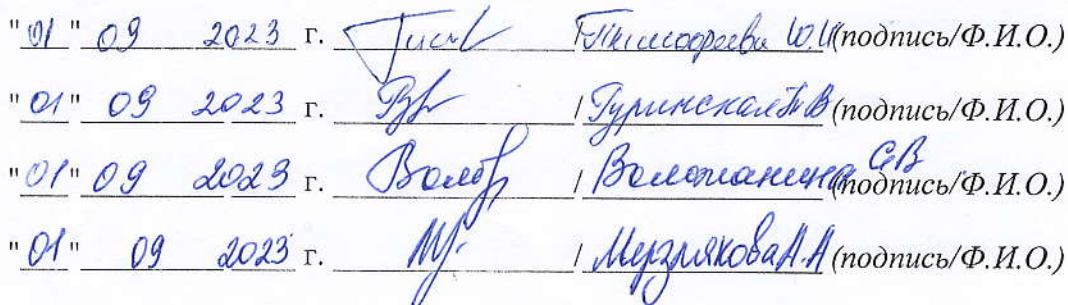 "01" 09 2023 г. / Тимофеева Ю.И (подпись/Ф.И.О.)
"01" 09 2023 г. / Гуринская В (подпись/Ф.И.О.)
"01" 09 2023 г. / Воложанина С.В (подпись/Ф.И.О.)
"01" 09 2023 г. / Мерзлякова А.А (подпись/Ф.И.О.)